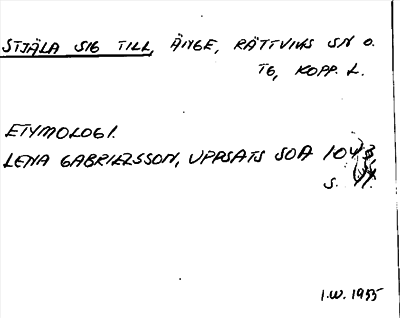 STJÄLA SIG TILL, ÄNGE, RÄTTVIKS SN O.
TG, KOPP. L.
ETYMOLOGI.
LENA GABRIELSSON, UPPSATS SOA 1043,
S.
I.W. 1955